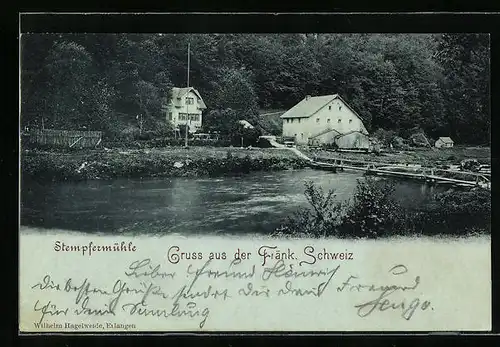 Stempfermühle
Gruss aus der Fränk. Schweiz
Lieber Freund
Die besten Grüsse sendet Dir Dein Freund
für Dein Samlung
Wilhelm Hagelweide, Erlangen